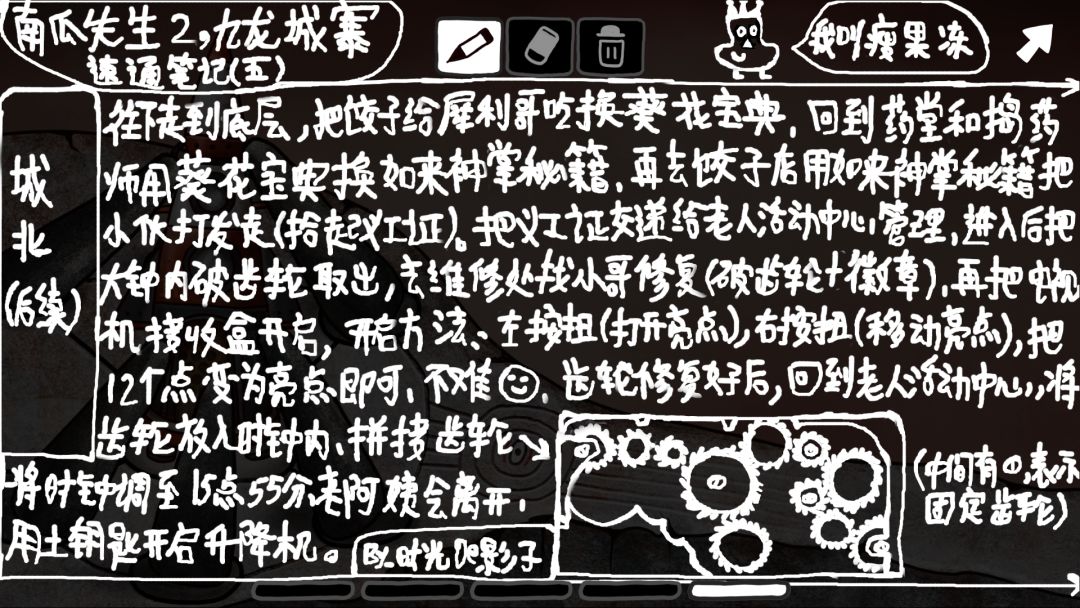 南瓜先生2,九龙城寨
速通笔记(五)
我叫瘦果冻
城北(后续)
往下走到底层,把饺子给犀利哥吃换葵花宝典,回到药堂和捣药
师用葵花宝典换如来神掌秘籍,再去饺子店用如来神掌秘籍把
小伙打发走(拾起义工证)。把义工证交递给老人活动中心管理,进入后把
大钟内破齿轮取出,去维修处找小哥修复(破齿轮+徽章),再把电视
机接收盒开启,开启方法、左按扭(打开亮点),右按扭(移动亮点),把
12个点变为亮点即可,不难,齿轮修复好后,回到老人活动中心,将
齿轮放入时钟内,拼接齿轮
将时钟调至15点55分,老阿姨会离开,
用土钥匙开启升降机。
时光 影子
(中间有⊙,表示
固定齿轮)